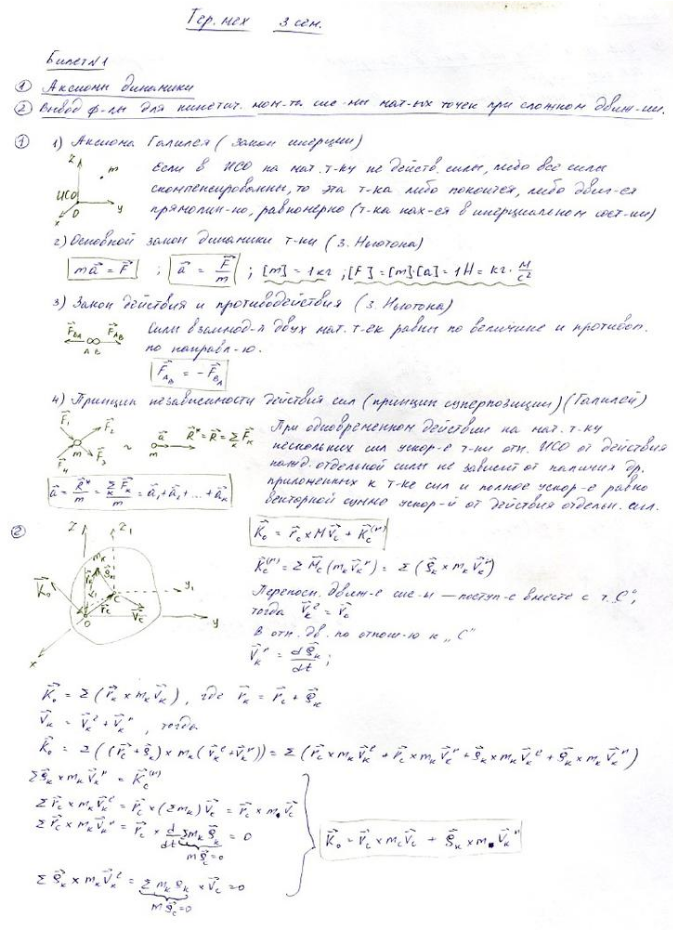 Тер. мех 3 сем.
Билет №1
① Аксиомы динамики
② Вывод ф-лы для кинетич. мом-та сис-мы мат-ых точек при сложном движ-ии.
① 1) Аксиома Галилея (закон инерции)
z m ИСО O y x
Если в ИСО на мат. т-ку не действ. силы, либо все силы
скомпенсированны, то эта т-ка либо покоится, либо движ-ся
прямолин-но, равномерно (т-ка нах-ся в инерциальном сост-ии)
2) Основной закон динамики т-ки (з. Ньютона)
ma⃗ = F⃗ ; a⃗ = F⃗/m ; [m] = 1кг ; [F] = [m]·[a] = 1Н = кг · м/с²
3) Закон действия и противодействия (з. Ньютона)
F⃗_BA F⃗_AB A B
Силы взаимод-я двух мат. т-ек равны по величине и противоп.
по направл-ю.
F⃗_AB = −F⃗_BA
4) Принцип независимости действия сил (принцип суперпозиции) (Галилей)
F⃗₁ F⃗₂ F⃗₃ F⃗₄ m ~ a⃗ m R⃗* = R⃗ = Σ F⃗ₖ
При одновременном действии на мат. т-ку
нескольких сил ускор-е т-ки отн. ИСО от действия
кажд. отдельной силы не зависит от наличия др.
приложенных к т-ке сил и полное ускор-е равно
векторной сумме ускор-й от действия отдельн. сил.
a⃗ = R⃗*/m = Σ F⃗ₖ/m = a⃗₁ + a⃗₂ + ... + a⃗ₖ
② z z₁ mₖ K⃗₀ r⃗c C V⃗c O y₁ y x
K⃗₀ = r⃗c × MV⃗c + K⃗c⁽ʳ⁾
K⃗c⁽ʳ⁾ = Σ M⃗c (mₖV⃗ₖʳ) = Σ (ρ⃗ₖ × mₖV⃗ₖʳ)
Переносн. движ-е сис-ы — поступ-е вместе с т. „C“,
тогда V⃗ₖᵉ = V⃗c
В отн. дв. по отнош-ю к „C“
V⃗ₖʳ = dρ⃗ₖ/dt ;
K⃗₀ = Σ (r⃗ₖ × mₖV⃗ₖ), где r⃗ₖ = r⃗c + ρ⃗ₖ
V⃗ₖ = V⃗ₖᵉ + V⃗ₖʳ, тогда
K⃗₀ = Σ ((r⃗c + ρ⃗ₖ) × mₖ(V⃗ₖᵉ + V⃗ₖʳ)) = Σ (r⃗c × mₖV⃗ₖᵉ + r⃗c × mₖV⃗ₖʳ + ρ⃗ₖ × mₖV⃗ₖᵉ + ρ⃗ₖ × mₖV⃗ₖʳ)
Σρ⃗ₖ × mₖV⃗ₖʳ = K⃗c⁽ʳ⁾
Σr⃗c × mₖV⃗ₖᵉ = r⃗c × (Σmₖ)V⃗c = r⃗c × m V⃗c
Σr⃗c × mₖV⃗ₖʳ = r⃗c × d/dt Σmₖρ⃗ₖ = 0
mρ⃗c = 0
K⃗₀ = r⃗c × mcV⃗c + ρ⃗ₖ × m V⃗ₖʳ
Σ ρ⃗ₖ × mₖV⃗ₖᵉ = Σ mₖρₖ × V⃗c = 0
mρ⃗c = 0